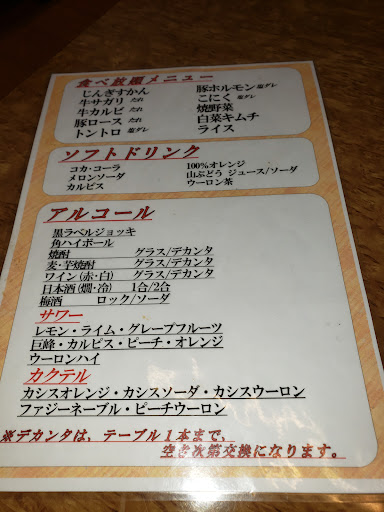 食べ放題メニュー
じんぎすかん
牛サガリ タレ
牛カルビ タレ
豚ロース タレ
トントロ 塩ダレ
豚ホルモン 塩ダレ
こにく 塩ダレ
焼野菜
白菜キムチ
ライス
ソフトドリンク
コカ・コーラ
メロンソーダ
カルピス
100%オレンジ
山ぶどう ジュース/ソーダ
ウーロン茶
アルコール
黒ラベルジョッキ
角ハイボール
焼酎 グラス/デカンタ
麦・芋焼酎 グラス/デカンタ
ワイン(赤・白) グラス/デカンタ
日本酒(燗・冷) 1合/2合
梅酒 ロック/ソーダ
サワー
レモン・ライム・グレープフルーツ
巨峰・カルピス・ピーチ・オレンジ
ウーロンハイ
カクテル
カシスオレンジ・カシスソーダ・カシスウーロン
ファジーネーブル・ピーチウーロン
※デカンタは、テーブル1本まで、
空き次第交換になります。